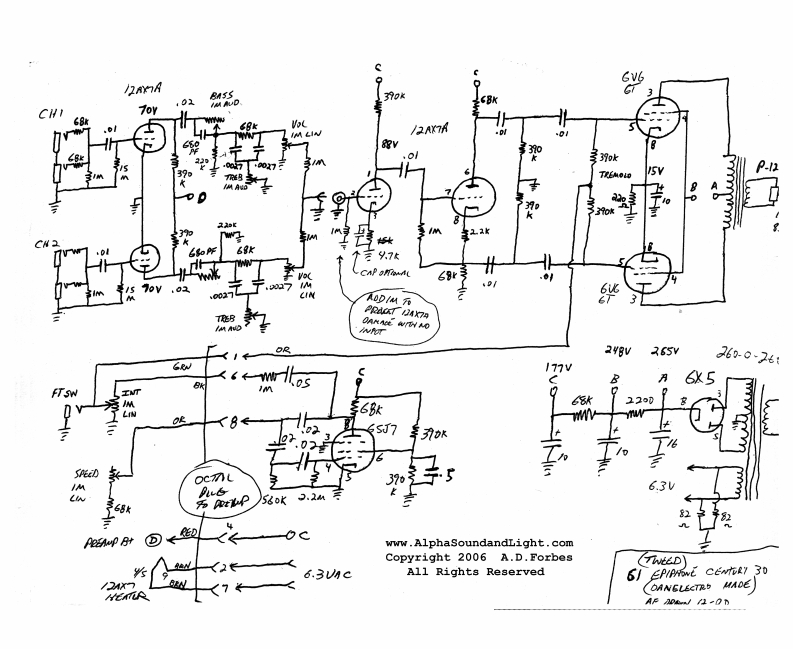 12AX7A
BASS
1M AUD.
CH1
68K
.01
70V
.02
68K
680
PF
220
K
VOL
1M LIN
68K
1M
15
M
390
K
.0027
.0027
TREB
1M AUD
1M
D
390
K
CH2
.01
1M
15
M
70V
.02
680PF
220K
68K
.0027
.0027
VOL
1M
LIN
1M
TREB
1M AUD
C
390K
88V
.01
12AX7A
C
68K
.01
.01
2
1
3
1M
15K
4.7K
CAP OPTIONAL
ADD 1M TO
PREVENT 12AX7A
DAMAGE WITH NO
INPUT
7
6
8
1M
2.2K
68K
.01
.01
390
K
390
K
390K
TREMOLO
390K
6V6
GT
3
5
4
8
15V
220
Ω
+
10
B
A
P-12
8
5
4
3
6V6
GT
FTSW
GRN
1
OR
BK
6
1M
.05
INT
1M
LIN
OR
8
SPEED
1M
LIN
68K
OCTAL
PLUG
TO PREAMP
.02
.02
.02
560K
2.2M
C
68K
6SJ7
8
3
4
5
6
390K
390
K
.5
PREAMP B+
D
RED
4
C
4/5
9
BRN
2
BRN
7
12AX7
HEATER
6.3VAC
177V
C
248V
B
265V
A
260-0-260
68K
2200
6X5
8
3
5
+
10
+
10
+
16
6.3V
82
Ω
82
Ω
www.AlphaSoundandLight.com
Copyright 2006 A.D.Forbes
All Rights Reserved
(TWEED)
61 EPIPHONE CENTURY 30
(DANELECTRO MADE)
AF DRAWN 12-00